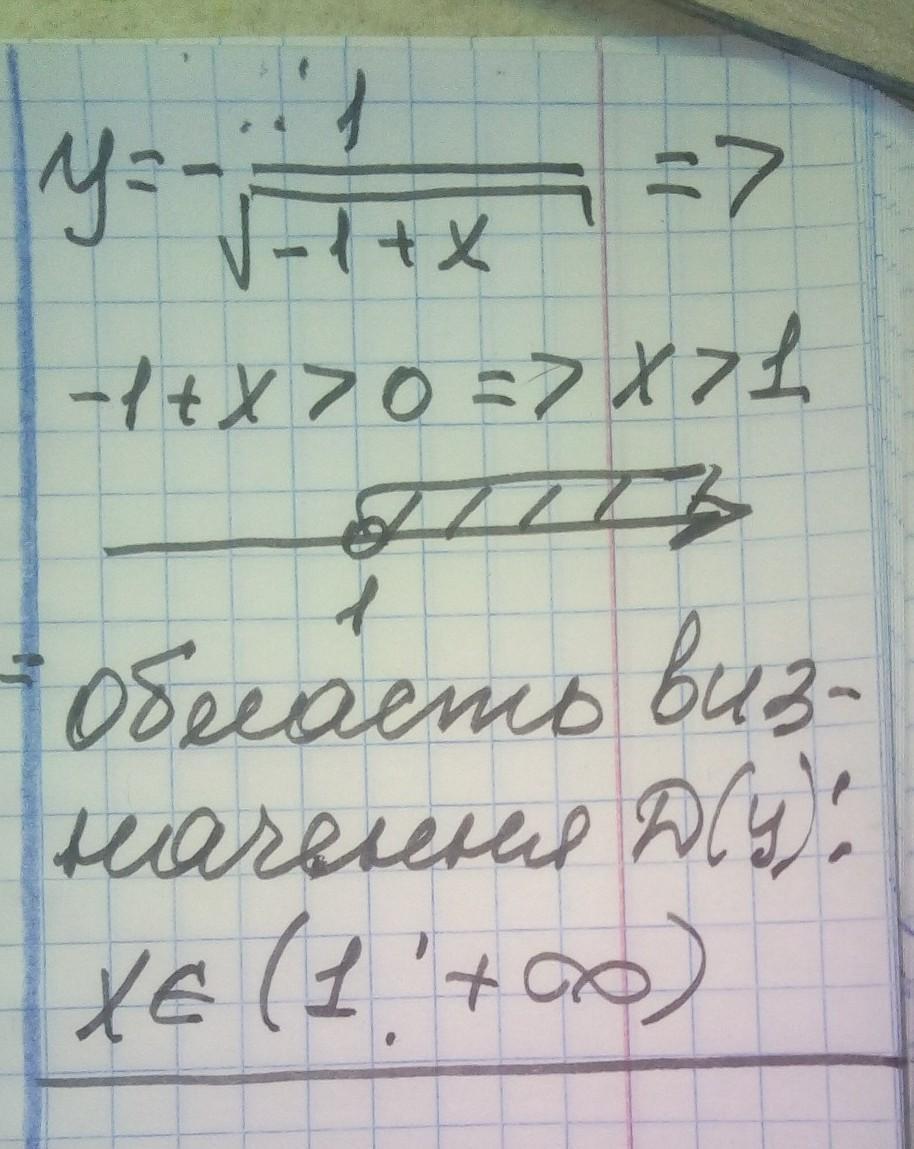 y = - 1/√(-1+x) =>
-1+x > 0 => x > 1
1
= область виз-
начення D(y):
x ∈ (1; +∞)